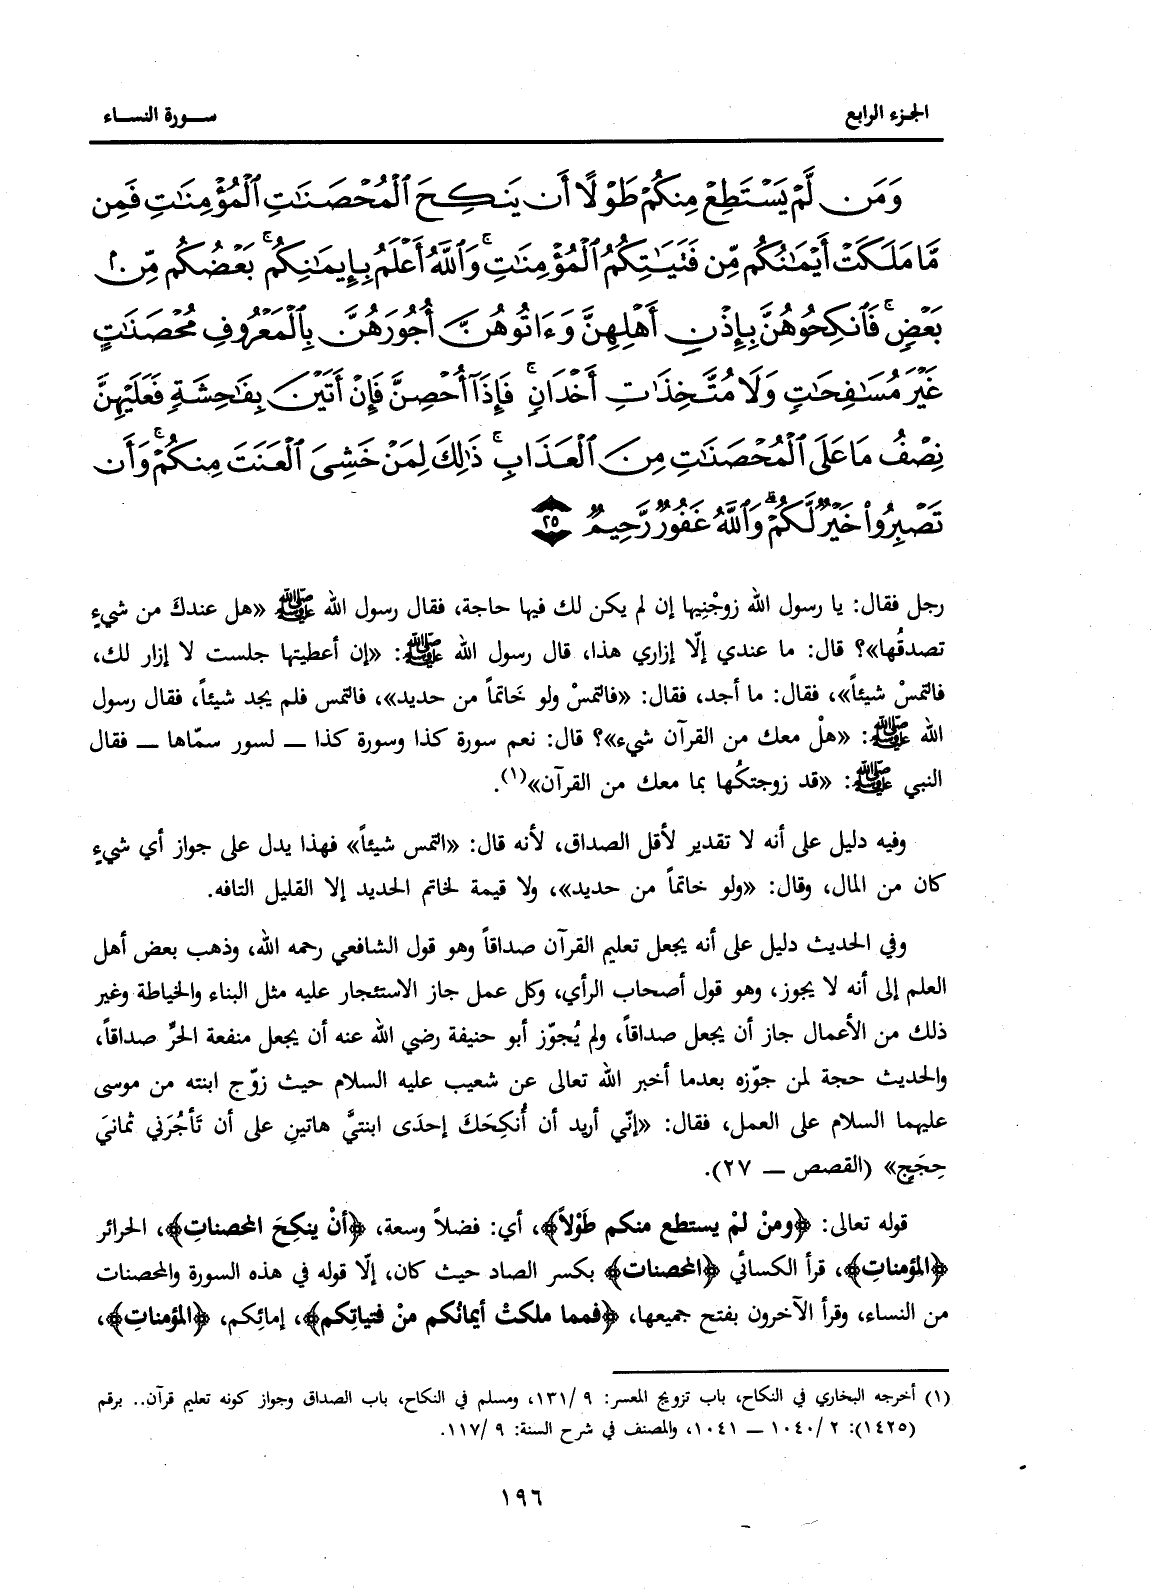 الجزء الرابع
سورة النساء
وَمَن لَّمْ يَسْتَطِعْ مِنكُمْ طَوْلًا أَن يَنكِحَ الْمُحْصَنَاتِ الْمُؤْمِنَاتِ فَمِن
مَّا مَلَكَتْ أَيْمَانُكُم مِّن فَتَيَاتِكُمُ الْمُؤْمِنَاتِ ۚ وَاللَّهُ أَعْلَمُ بِإِيمَانِكُم ۚ بَعْضُكُم مِّن
بَعْضٍ ۚ فَانكِحُوهُنَّ بِإِذْنِ أَهْلِهِنَّ وَءَاتُوهُنَّ أُجُورَهُنَّ بِالْمَعْرُوفِ مُحْصَنَاتٍ
غَيْرَ مُسَافِحَاتٍ وَلَا مُتَّخِذَاتِ أَخْدَانٍ ۚ فَإِذَا أُحْصِنَّ فَإِنْ أَتَيْنَ بِفَاحِشَةٍ فَعَلَيْهِنَّ
نِصْفُ مَا عَلَى الْمُحْصَنَاتِ مِنَ الْعَذَابِ ۚ ذَٰلِكَ لِمَنْ خَشِيَ الْعَنَتَ مِنكُمْ ۚ وَأَن
تَصْبِرُوا خَيْرٌ لَّكُمْ ۗ وَاللَّهُ غَفُورٌ رَّحِيمٌ ٢٥
رجل فقال: يا رسول الله زوجْنِيها إن لم يكن لك فيها حاجة، فقال رسول الله ﷺ «هل عندكَ من شيءٍ
تصدقُها»؟ قال: ما عندي إلّا إزاري هذا، قال رسول الله ﷺ: «إن أعطيتها جلست لا إزار لك،
فالتمسْ شيئاً»، فقال: ما أجد، فقال: «فالتمسْ ولو خَاتماً من حديد»، فالتمس فلم يجد شيئاً، فقال رسول
الله ﷺ: «هلْ معك من القرآن شيء»؟ قال: نعم سورة كذا وسورة كذا ــ لسور سمّاها ــ فقال
النبي ﷺ: «قد زوجتكُها بما معك من القرآن»(١).
وفيه دليل على أنه لا تقدير لأقل الصداق، لأنه قال: «التمس شيئاً» فهذا يدل على جواز أي شيءٍ
كان من المال، وقال: «ولو خاتماً من حديد»، ولا قيمة لخاتم الحديد إلا القليل التافه.
وفي الحديث دليل على أنه يجعل تعليم القرآن صداقاً وهو قول الشافعي رحمه الله، وذهب بعض أهل
العلم إلى أنه لا يجوز، وهو قول أصحاب الرأي، وكل عمل جاز الاستئجار عليه مثل البناء والخياطة وغير
ذلك من الأعمال جاز أن يجعل صداقاً، ولم يُجوّز أبو حنيفة رضي الله عنه أن يجعل منفعة الحرِّ صداقاً،
والحديث حجة لمن جوّزه بعدما أخبر الله تعالى عن شعيب عليه السلام حيث زوّج ابنته من موسى
عليهما السلام على العمل، فقال: «إنّي أريد أن أُنكِحَكَ إحدَى ابنتيَّ هاتينِ على أن تَأجُرَني ثمانيَ
حِجَجٍ» (القصص ــ ٢٧).
قوله تعالى: ﴿ومنْ لمْ يستطع منكم طَوْلاً﴾، أي: فضلاً وسعة، ﴿أنْ ينكِحَ المحصناتِ﴾، الحرائر
﴿المؤمناتِ﴾، قرأ الكسائي ﴿المحصنات﴾ بكسر الصاد حيث كان، إلّا قوله في هذه السورة والمحصنات
من النساء، وقرأ الآخرون بفتح جميعها، ﴿فمما ملكتْ أيمانُكم منْ فتياتِكم﴾، إمائِكم، ﴿المؤمناتِ﴾،
(١) أخرجه البخاري في النكاح، باب تزويج المعسر: ٩ /١٣١، ومسلم في النكاح، باب الصداق وجواز كونه تعليم قرآن.. برقم
(١٤٢٥): ٢ /١٠٤٠ ــ ١٠٤١، والمصنف في شرح السنة: ٩ /١١٧.
١٩٦